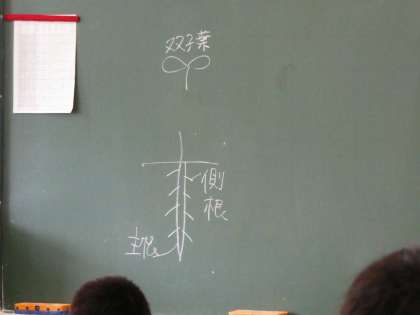 双子葉
側根
主根